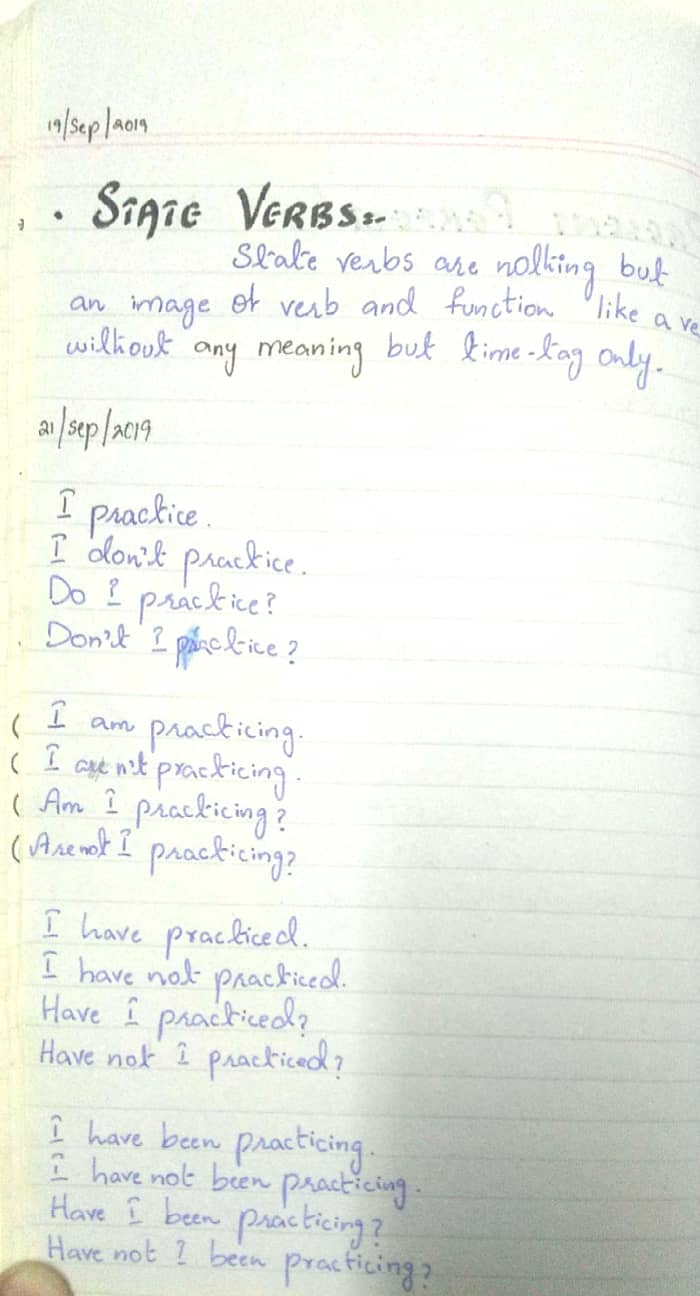 19/Sep/2019
• STATE VERBS:-
State verbs are nothing but
an image of verb and function like a ve
without any meaning but time-tag only.
21/sep/2019
I practice.
I don't practice.
Do I practice?
Don't I practice?
( I am practicing.
( I aren't practicing.
( Am I practicing?
( Are not I practicing?
I have practiced.
I have not practiced.
Have I practiced?
Have not I practiced?
I have been practicing.
I have not been practicing.
Have I been practicing?
Have not I been practicing?